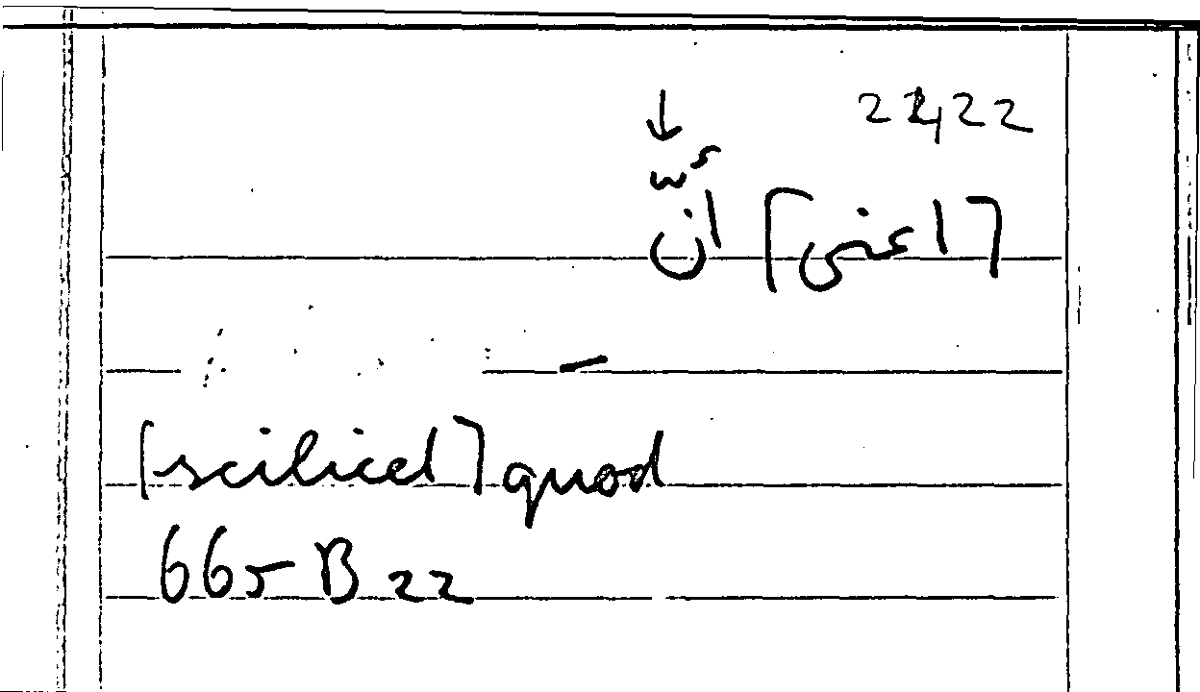 22,22
↓
[اعنى] ان
[scilicet] quod
665 B 22